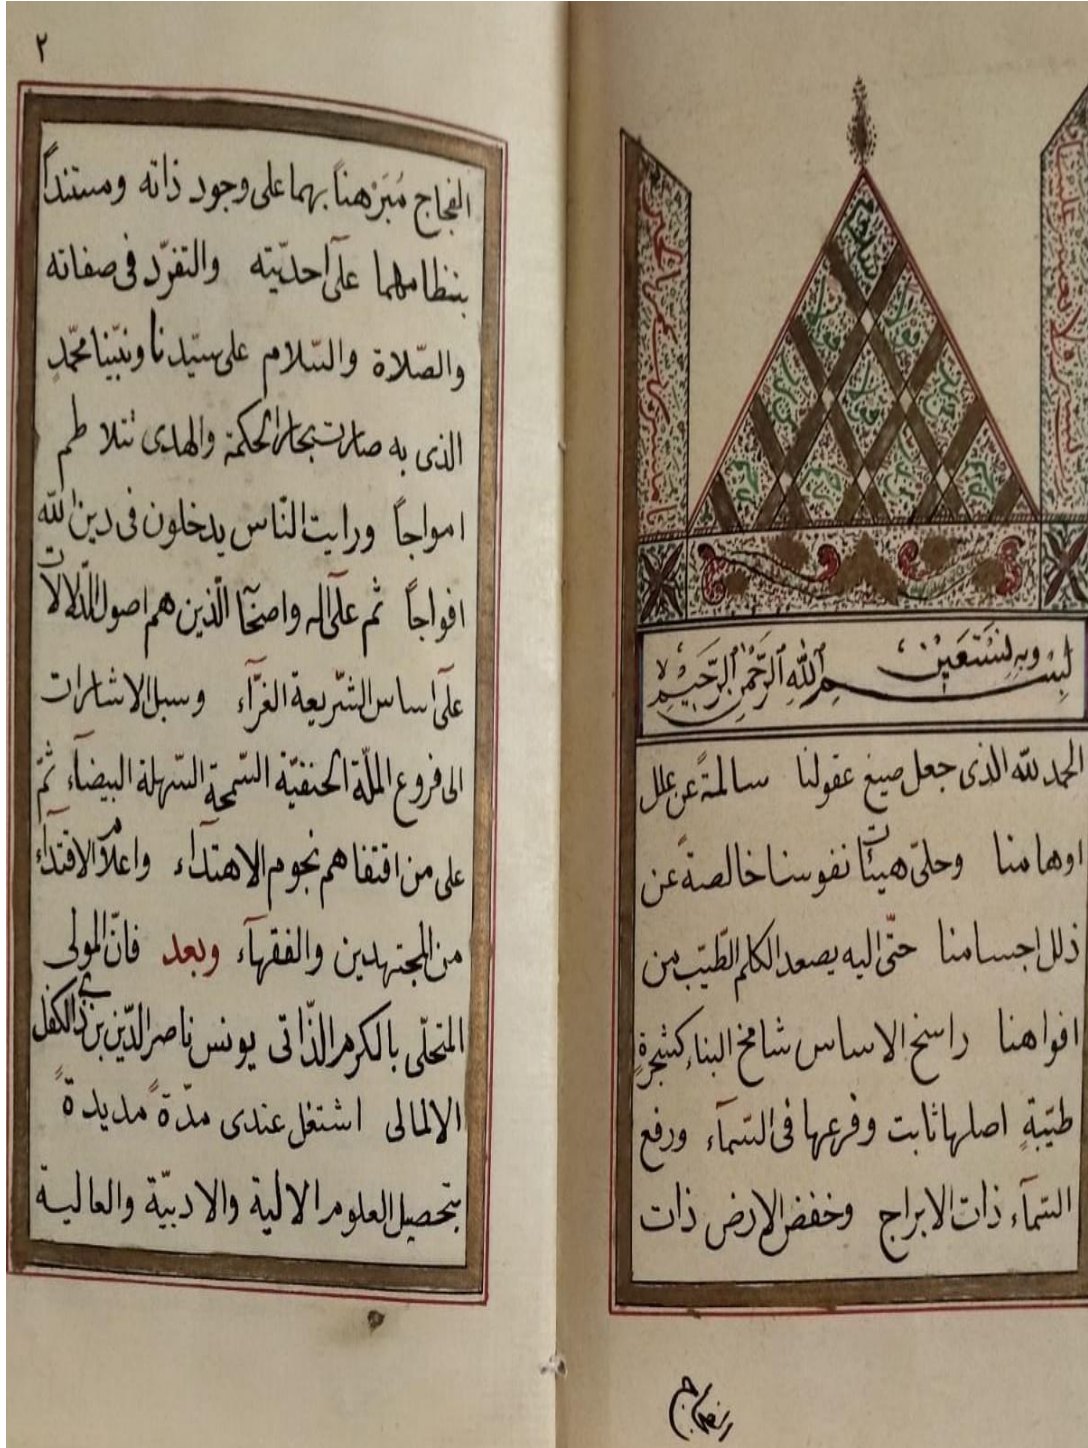 وبه نستعين
بسم الله الرحمن الرحيم
الحمد لله الذى جعل صيغ عقولنا سالمةً عن علل
اوهامنا وحلىّ هيئات نفوسنا خالصةً عن
ذلل اجسامنا حتّى اليه يصعد الكلم الطّيّب من
افواهنا راسخ الاساس شامخ البناء كشجرةٍ
طيّبةٍ اصلها ثابت وفرعها فى السّمآء ورفع
السّمآء ذات الابراج وخفض الارض ذات
٢
الفجاج مُبَرْهناً بهما على وجود ذاته ومستنداً
بنظامهما علىٓ احديّته والتفرّد فى صفاته
والصّلاة والسّلام على سيّدنا ونبيّنا محمّدٍ
الذى به صارت بحار الحكمة والهدى تتلاطم
امواجاً ورايت النّاس يدخلون فى دين الله
افواجاً ثم علىٓ اله واصحٓا الّذين هم اصول الدّلالات
علىٓ اساس الشّريعة الغرّآء وسبل الاشارات
الى فروع الملّة الحنفيّة السّمحة السّهلة البيضآء ثمّ
على من اقتفاهم نجوم الاهتدآء واعلام الاقتدآء
من المجتهدين والفقهآء وبعد فانّ المولى
المتحلّى بالكرم الذّاتى يونس ناصر الدّين بن ذي الكفل
الالمالى اشتغل عندى مدّةً مديدةً
بتحصيل العلوم الالية والادبيّة والعالية